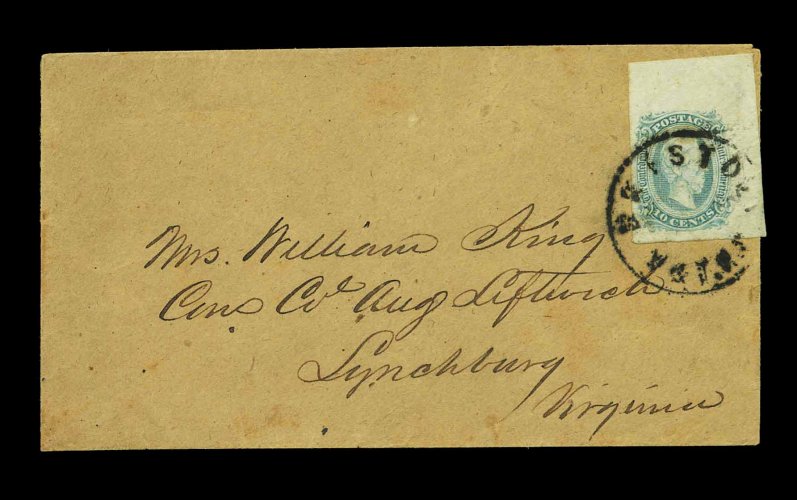 POSTAGE
10 CENTS
BRISTOL
Mrs. William King
Care Col Aug Leftwich
Lynchburg
Virginia